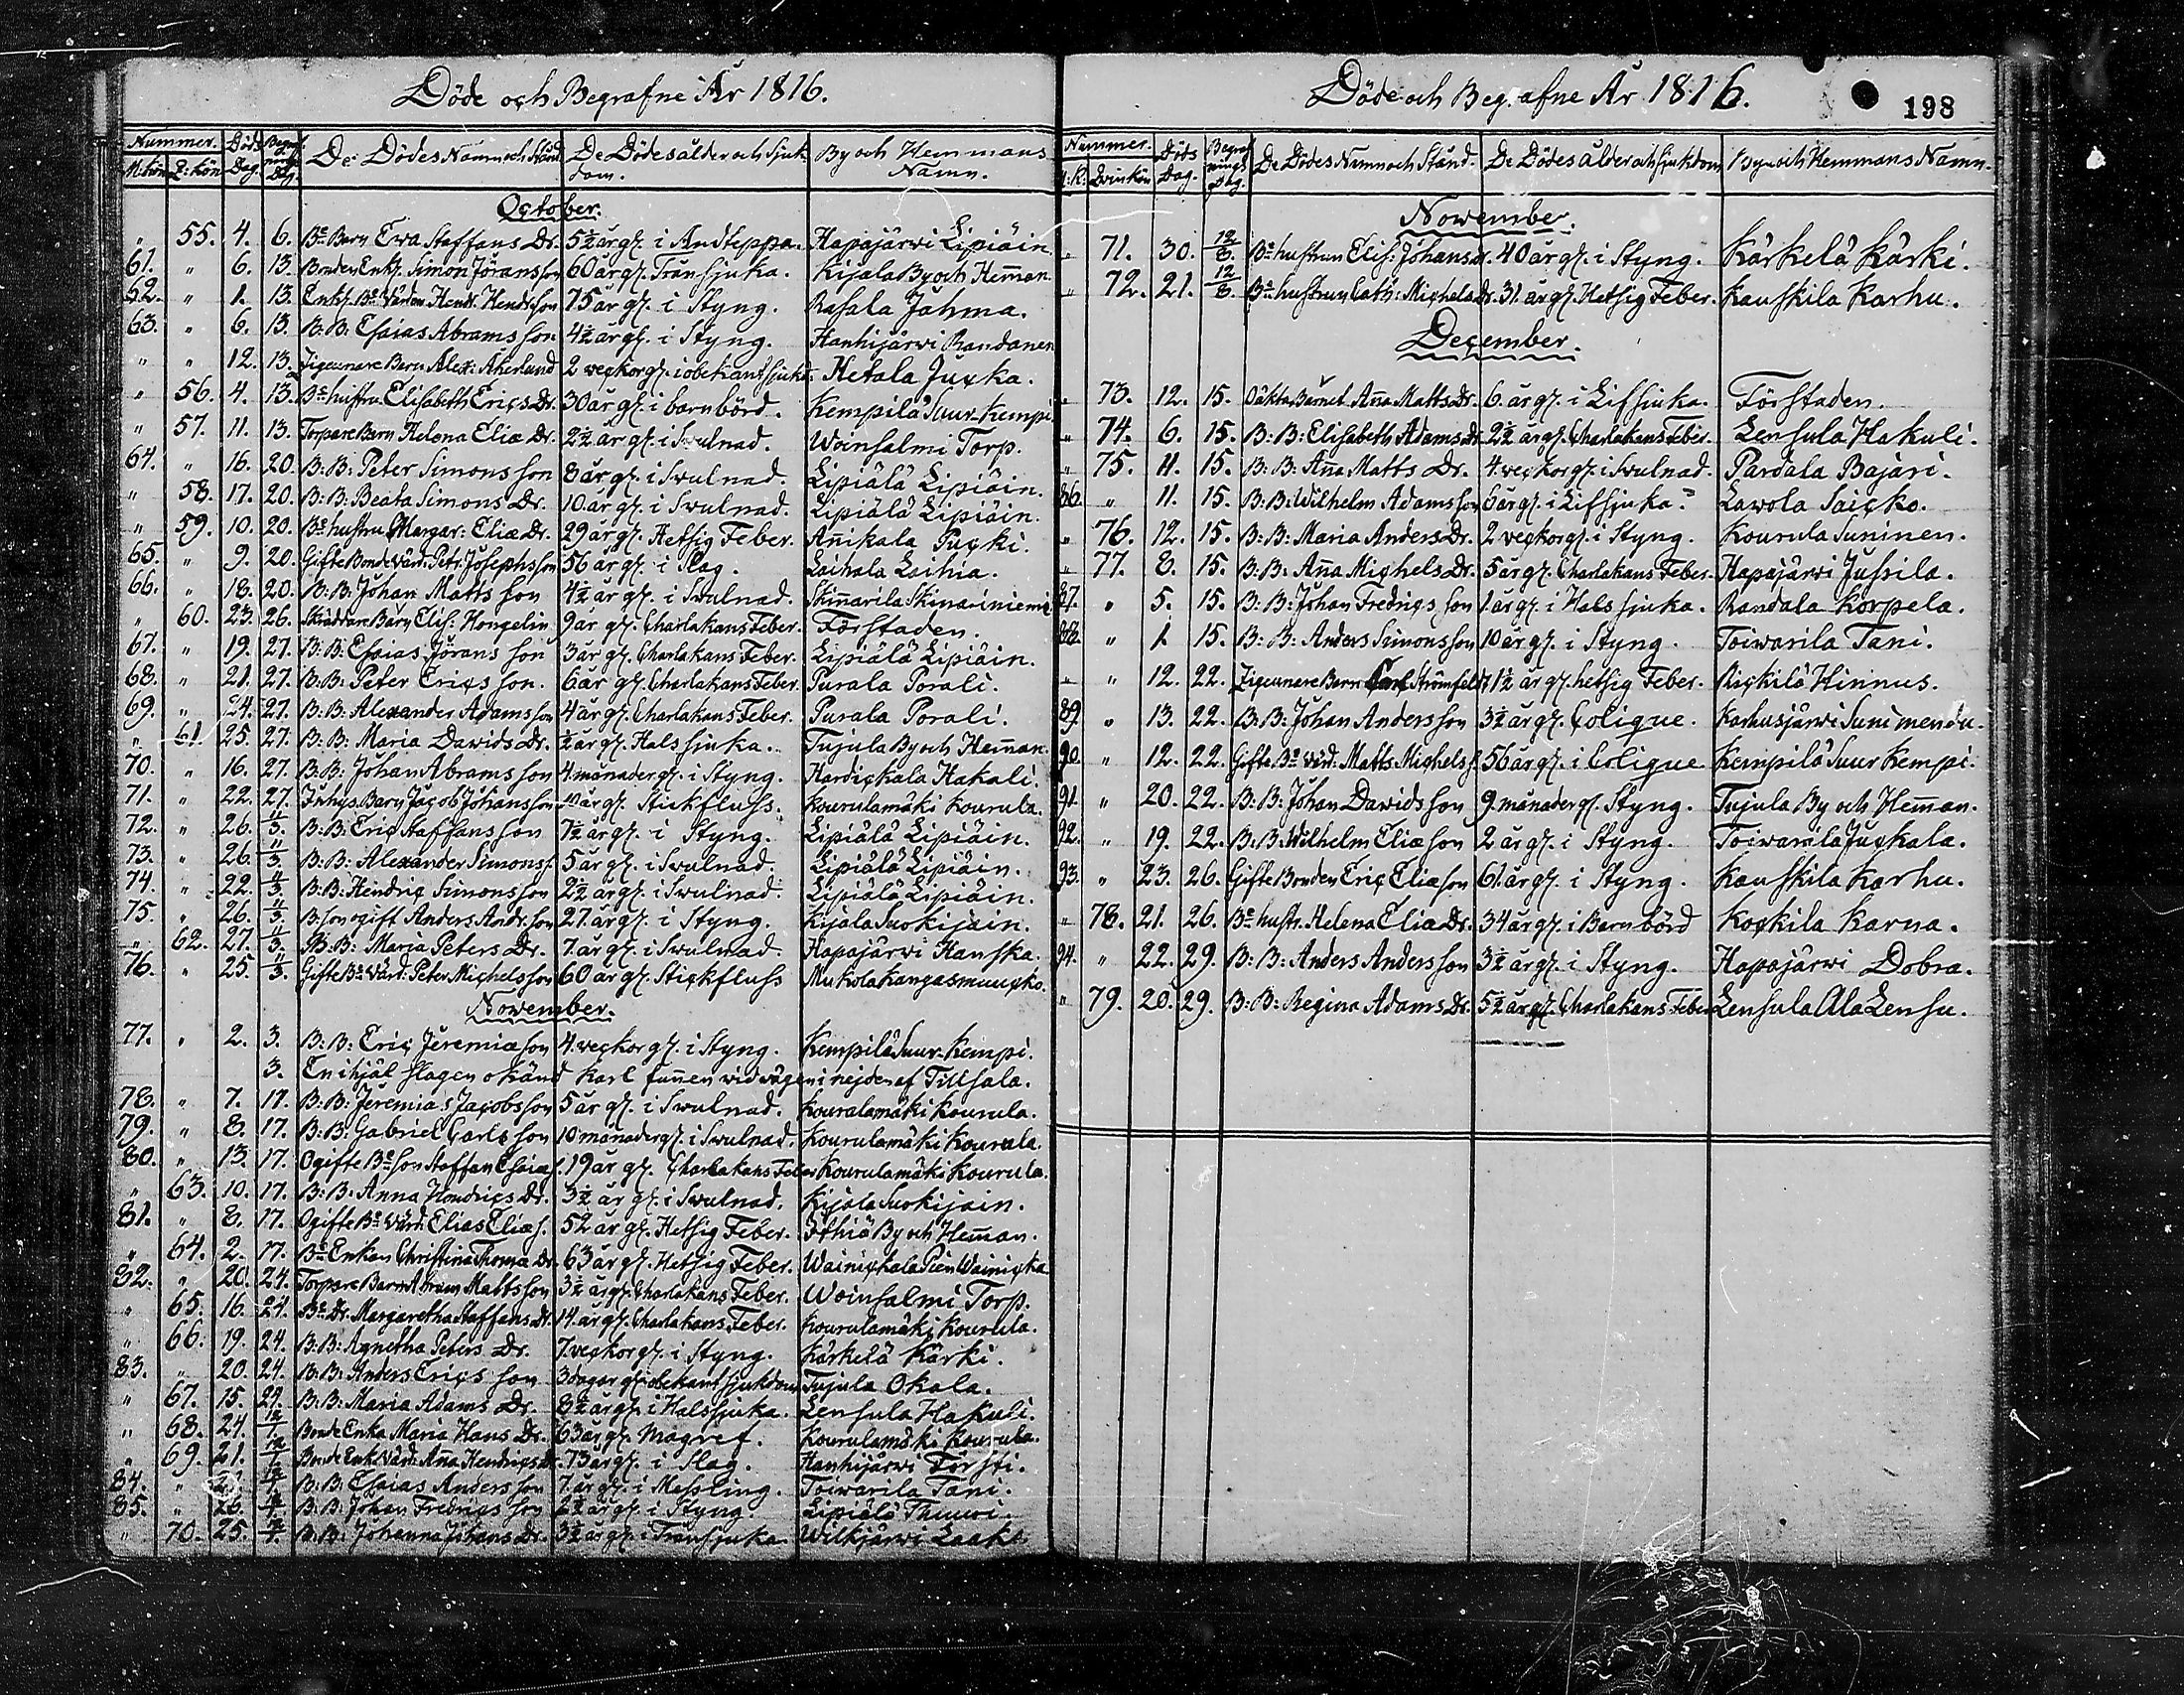 Döde och Begrafne År 1816.
Nummer. Döds Dag. Begrafnings Dag. De Dödes Namn och Stånd De Dödes ålder och Sjukdom. By och Hemmans Namn.
M:kön Q:kön
October.
" 55. 4. 6. Be Barn Ewa Staffans Dr. 5½ år gl. i Andteppa. Hapajärwi Lipiäin.
61. " 6. 13. Bonden Enkl. Simon Jöransson 60 år gl. Trånsjuka. Kijala By och Hem̄an.
62. " 1. 13. Enkl. Be Värden Hendr. Hendrsson 75 år gl. i Styng. Rasala Jahma.
63. " 6. 13. B: B: Esaias Abramsson 4½ år gl. i Styng. Hanhijärwi Randanen
" " 12. 13. Zigeunare Barn Alex: Åkerlund 2 veckor gl. i obekant sjukd. Hetala Jucka.
" 56. 4. 13. Be hustru Elisabeth Erics Dr. 30 år gl. i barnbörd. Kempilä Suur Kempi
" 57. 11. 13. Torpare Barn Helena Eliæ Dr. 2½ år gl. i Swulnad. Woinsalmi Torp.
64. " 16. 20. B: B: Peter Simonsson 8 år gl. i Swulnad. Lipiälä Lipiäin.
" 58. 17. 20. B: B: Beata Simons Dr. 10 år gl. i Swulnad. Lipiälä Lipiäin.
" 59. 10. 20. Be hustru Margar: Eliæ Dr. 29 år gl. Hetsig Feber. An̄ikala Pucki.
65. " 9. 20. Gifte Bonde Värd. Petr. Josephsson 56 år gl. i Slag. Laihala Laihia.
66. " 18. 20. B: B: Johan Mattsson 4½ år gl. i Swulnad. Skin̄arila Skinariniemi
" 60. 23. 26. Skräddare Barn Elis: Hongelin 9 år gl. Charlakans Feber. Förstaden.
67. " 19. 27. B: B: Esaias Jöransson 3 år gl. Charlakans Feber. Lipiälä Lipiäin.
68. " 21. 27. B: B: Peter Ericsson. 6 år gl. Charlakans Feber. Purala Porali.
69. " 24. 27. B: B: Alexander Adamsson 4 år gl. Charlakans Feber. Purala Porali.
" 61. 25. 27. B: B: Maria Dawids Dr. ½ år gl. Halssjuka. Tujula By och Hem̄an.
70. " 16. 27. B: B: Johan Abramsson 4 månader gl. i Styng. Hardickala Hakali.
71. " 22. 27. Inhys. Barn Jacob Johansson 10 år gl. Stickfluss. Kourulamäki Kourula.
72. " 26. 11/3. B: B: Eric Staffansson 7½ år gl. i Styng. Lipiälä Lipiäin.
73. " 26. 11/3. B: B: Alexander Simonss. 5 år gl. i Swulnad. Lipiälä Lipiäin.
74. " 22. 11/3. B: B: Hendric Simonsson 2½ år gl. i Swulnad. Lipiälä Lipiäin.
75. " 26. 11/3. B: son ogift Anders Andr. son 27 år gl. i Styng. Kijala Suokijain.
" 62. 27. 11/3. B: B: Maria Peters Dr. 7 år gl. i Swulnad. Hapajärwi Hanska.
76. " 25. 11/3. Gifte Be Värd. Peter Michelsson 60 år gl. Stickfluss Mukola Kangasmuucko.
Nowember.
77. " 2. 3. B: B: Eric Jeremiæson 4 veckor gl. i Styng. Kempilä Suur-Kempi.
3. En ihjäl slagen okänd Karl fun̄en wid vägen i nejden af Tillsala.
78. " 7. 17. B: B: Jeremias Jacobsson 5 år gl. i Swulnad. Kourulamäki Kourula.
79. " 8. 17. B: B: Gabriel Carlsson 10 månader gl. i Swulnad. Kourulamäki Kourula.
80. " 13. 17. Ogifte Be son Staffan Esaiæs. 19 år gl. Charlakans Feber Kourulamäki Kourula.
" 63. 10. 17. B: B: Anna Hendrics Dr. 3½ år gl. i Swulnad. Kijala Suokijain.
81. " 8. 17. Ogifte Be Värd. Elias Eliæs. 52 år gl. Hetsig Feber. Ithiä By och Hem̄an.
" 64. 2. 17. Be Enkan Christina Thomæ Dr. 63 år gl. Hetsig Feber. Wainickala Pien Wainicka
82. " 20. 24. Torpare Barn Abram Mattsson 3½ år gl. Charlakans Feber. Woinsalmi Torp.
" 65. 16. 24. Be Dr. Margaretha Staffans Dr. 14 år gl. Charlakans Feber. Kourulamäki Kourula.
" 66. 19. 24. B: B: Agnetha Peters Dr. 7 veckor gl. i Styng. Kärkelä Kärki.
83. " 20. 24. B: B: Anders Ericsson 3 dagar gl. i obekant sjukdom Tujula Okala.
" 67. 15. 24. B: B: Maria Adams Dr. 8½ år gl. i Halssjuka. Lensula Hakuli.
" 68. 24. 12/1. Bonde Enka Maria Hans Dr. 63 år gl. Magref. Kourulamäki Kourula.
" 69. 21. 12/1. Bonde Enk. Värd. An̄a Hendrics Dr. 73 år gl. i Slag. Hanhijärwi Försti.
84. " 12/1. B: B: Esaias Andersson 7 år gl. i Messling. Toiwarila Tani.
85. " 26. 12/1. B: B: Johan Fredricsson 2½ år gl. i Styng. Lipiälä Thuuri.
" 70. 25. 12/1. B: B: Johanna Johans Dr. 3½ år gl. i Trånsjuka. Wilkjärwi Laaki
Döde och Begrafne År 1816.
198
Nummer. Döds Dag. Begrafnings Dag. De Dödes Namn och Stånd. De Dödes ålder och Sjukdom By och Hemmans Namn.
M:K: Qvinkön
Nowember.
" 71. 30. 12/8. Be hustrun Elis: Johans Dr. 40 år gl. i Styng. Kärkelä Kärki.
" 72. 21. 12/8. Be hustrun Cath: Michels Dr. 31 år gl. Hetsig Feber. Kauskila Karhu.
December.
" 73. 12. 15. Oäkta Barnet An̄a Matts Dr. 6 år gl. i Lifsjuka. Förstaden.
" 74. 6. 15. B: B: Elisabeth Adams Dr. 2½ år gl. Charlakans Feber. Lensula Hakuli.
" 75. 11. 15. B: B: An̄a Matts Dr. 4 veckor gl. i Swulnad. Pardala Bajari.
86. " 11. 15. B: B: Wilhelm Adamsson 6 år gl. i Lifsjuka. Lawola Saicko.
" 76. 12. 15. B: B: Maria Anders Dr. 2 veckor gl. i Styng. Kourula Suninen.
" 77. 8. 15. B: B: An̄a Michels Dr. 5 år gl. Charlakans Feber. Hapajärwi Jussila.
87. " 5. 15. B: B: Johan Fredricsson 1 år gl. i Halssjuka. Randala Korpela.
88. " 1 15. B: B: Anders Simonsson 10 år gl. i Styng. Toiwarila Tani.
" " 12. 22. Zigeunare Barn Carl Strömfelt 1½ år gl. hetsig Feber. Rickilä Hinnus.
89. " 13. 22. B: B: Johan Andersson 3½ år gl. Colique. Karhusjärwi Sunimendu.
90. " 12. 22. Gifte Be värd. Matts Michelss. 56 år gl. i Colique Kempilä Suur Kempi.
91. " 20. 22. B: B: Johan Dawidsson 9 månader gl. Styng. Tujula By och Hem̄an.
92. " 19. 22. B: B: Wilhelm Eliæson 2 år gl. i Styng. Toiwarila Juckala.
93. " 23. 26. Gifte Bonden Eric Eliæson 61 år gl. i Styng. Kauskila Karhu.
" 78. 21. 26. Be hustr. Helena Eliæ Dr. 34 år gl. i Barnbörd Kockila Karna.
94. " 22. 29. B: B: Anders Andersson 3½ år gl. i Styng. Hapajärwi Dobra.
" 79. 20. 29. B: B: Regina Adams Dr. 5½ år gl. Charlakans Feber Lensula Ala Lensu.